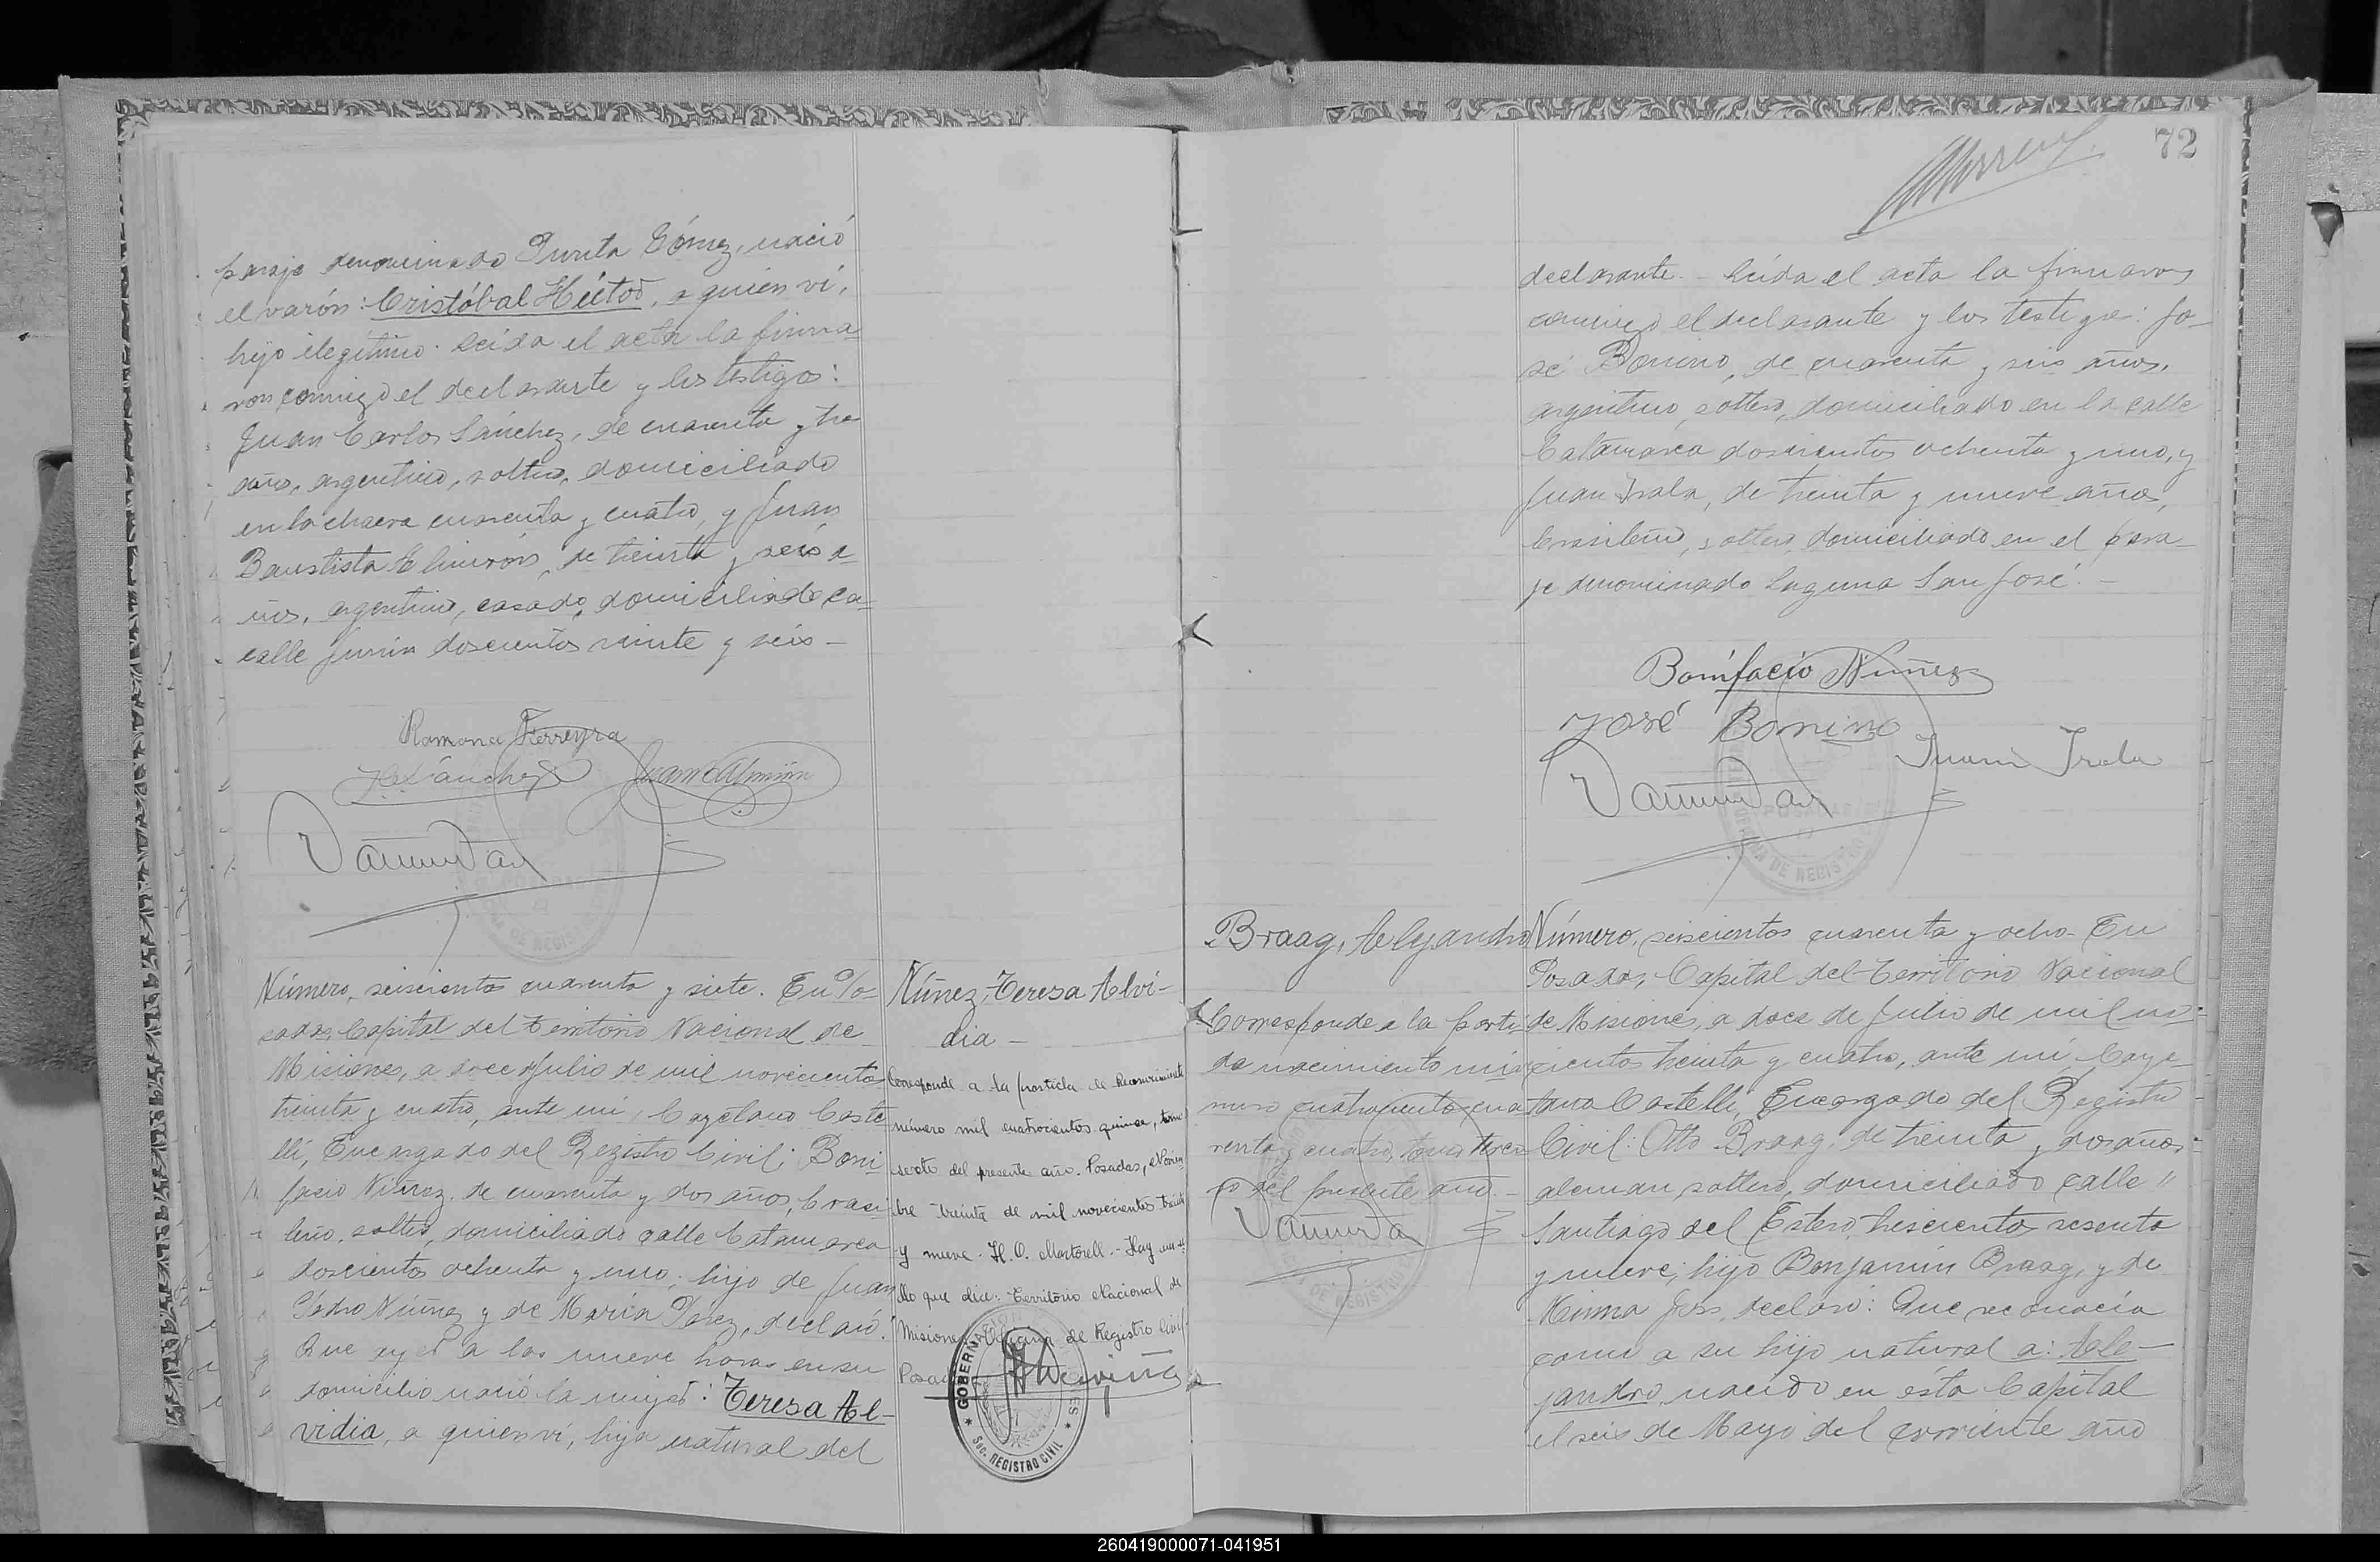 paraje denominado Punta Gómez, nació
el varón: Cristóbal Héctor, a quien ví,
hijo ilegítimo. Leída el acta la firma
ron conmigo el declarante y los testigos:
Juan Carlos Sánchez, de cuarenta y tre
años, argentino, soltero, domiciliado
en la chacra cuarenta y cuatro, y Juan
Bautista Almirón, de treinta y seis a-
ños, argentino, casado, domiciliado ca-
calle Junín doscientos veinte y seis -
Ramona Ferreyra
JCSánchez Juan B Almirón
Número, seiscientos cuarenta y siete. En Po-
sadas, Capital del Territorio Nacional de
Misiones, a doce Julio de mil novecientos
treinta y cuatro, ante mí, Cayetano Caste
lli, Encargado del Registro Civil: Boni
facio Núñez, de cuarenta y dos años, brasi
leño, soltero, domiciliado calle Catamarca
doscientos ochenta y uno; hijo de Juan
Pedro Núñez y de María Pérez, declaró:
Que ayer a las nueve horas en su
domicilio nació la mujer: Teresa Al-
vidia, a quien ví, hija natural del
Núñez, Teresa Alvi-
dia -
Corresponde a la partida de Reconocimiento
número mil cuatrocientos quince, tomo
sexto del presente año. Posadas, Noviem
bre treinta de mil novecientos treinta
y nueve. H. O. Martorell. - Hay un se
llo que dice: Territorio Nacional de
Misiones Oficina de Registro Civil
Posadas
GOBERNACION MISIONES
Sec. REGISTRO CIVIL
72
declarante. - Leída el acta la firmaron
conmigo el declarante y los testigos: Jo-
sé Bonino, de cuarenta y seis años,
argentino, soltero, domiciliado en la calle
Catamarca doscientos ochenta y uno, y
Juan Irala, de treinta y nueve años,
brasileño, soltero, domiciliado en el para-
je denominado Laguna San José. -
Bonifacio Núñez
José Bonino
Juan Irala
Braag, Alejandro
Corresponde a la parti-
da nacimiento nú-
mero cuatrocientos cua
renta y cuatro, tomo terce
ro del presente año. -
Número, seiscientos cuarenta y ocho. En
Posadas, Capital del Territorio Nacional
de Misiones, a doce de Julio de mil no-
vecientos treinta y cuatro, ante mí, Caye-
tano Castelli, Encargado del Registro
Civil: Otto Braag, de treinta y dos años,
aleman, soltero, domiciliado calle "
Santiago del Estero trescientos sesenta
y nueve; hijo Benjamin Braag, y de
Minna declaró: Que reconocía
como a su hijo natural a: Ale-
jandro, nacido en ésta Capital
el seis de Mayo del corriente año
260419000071-041951